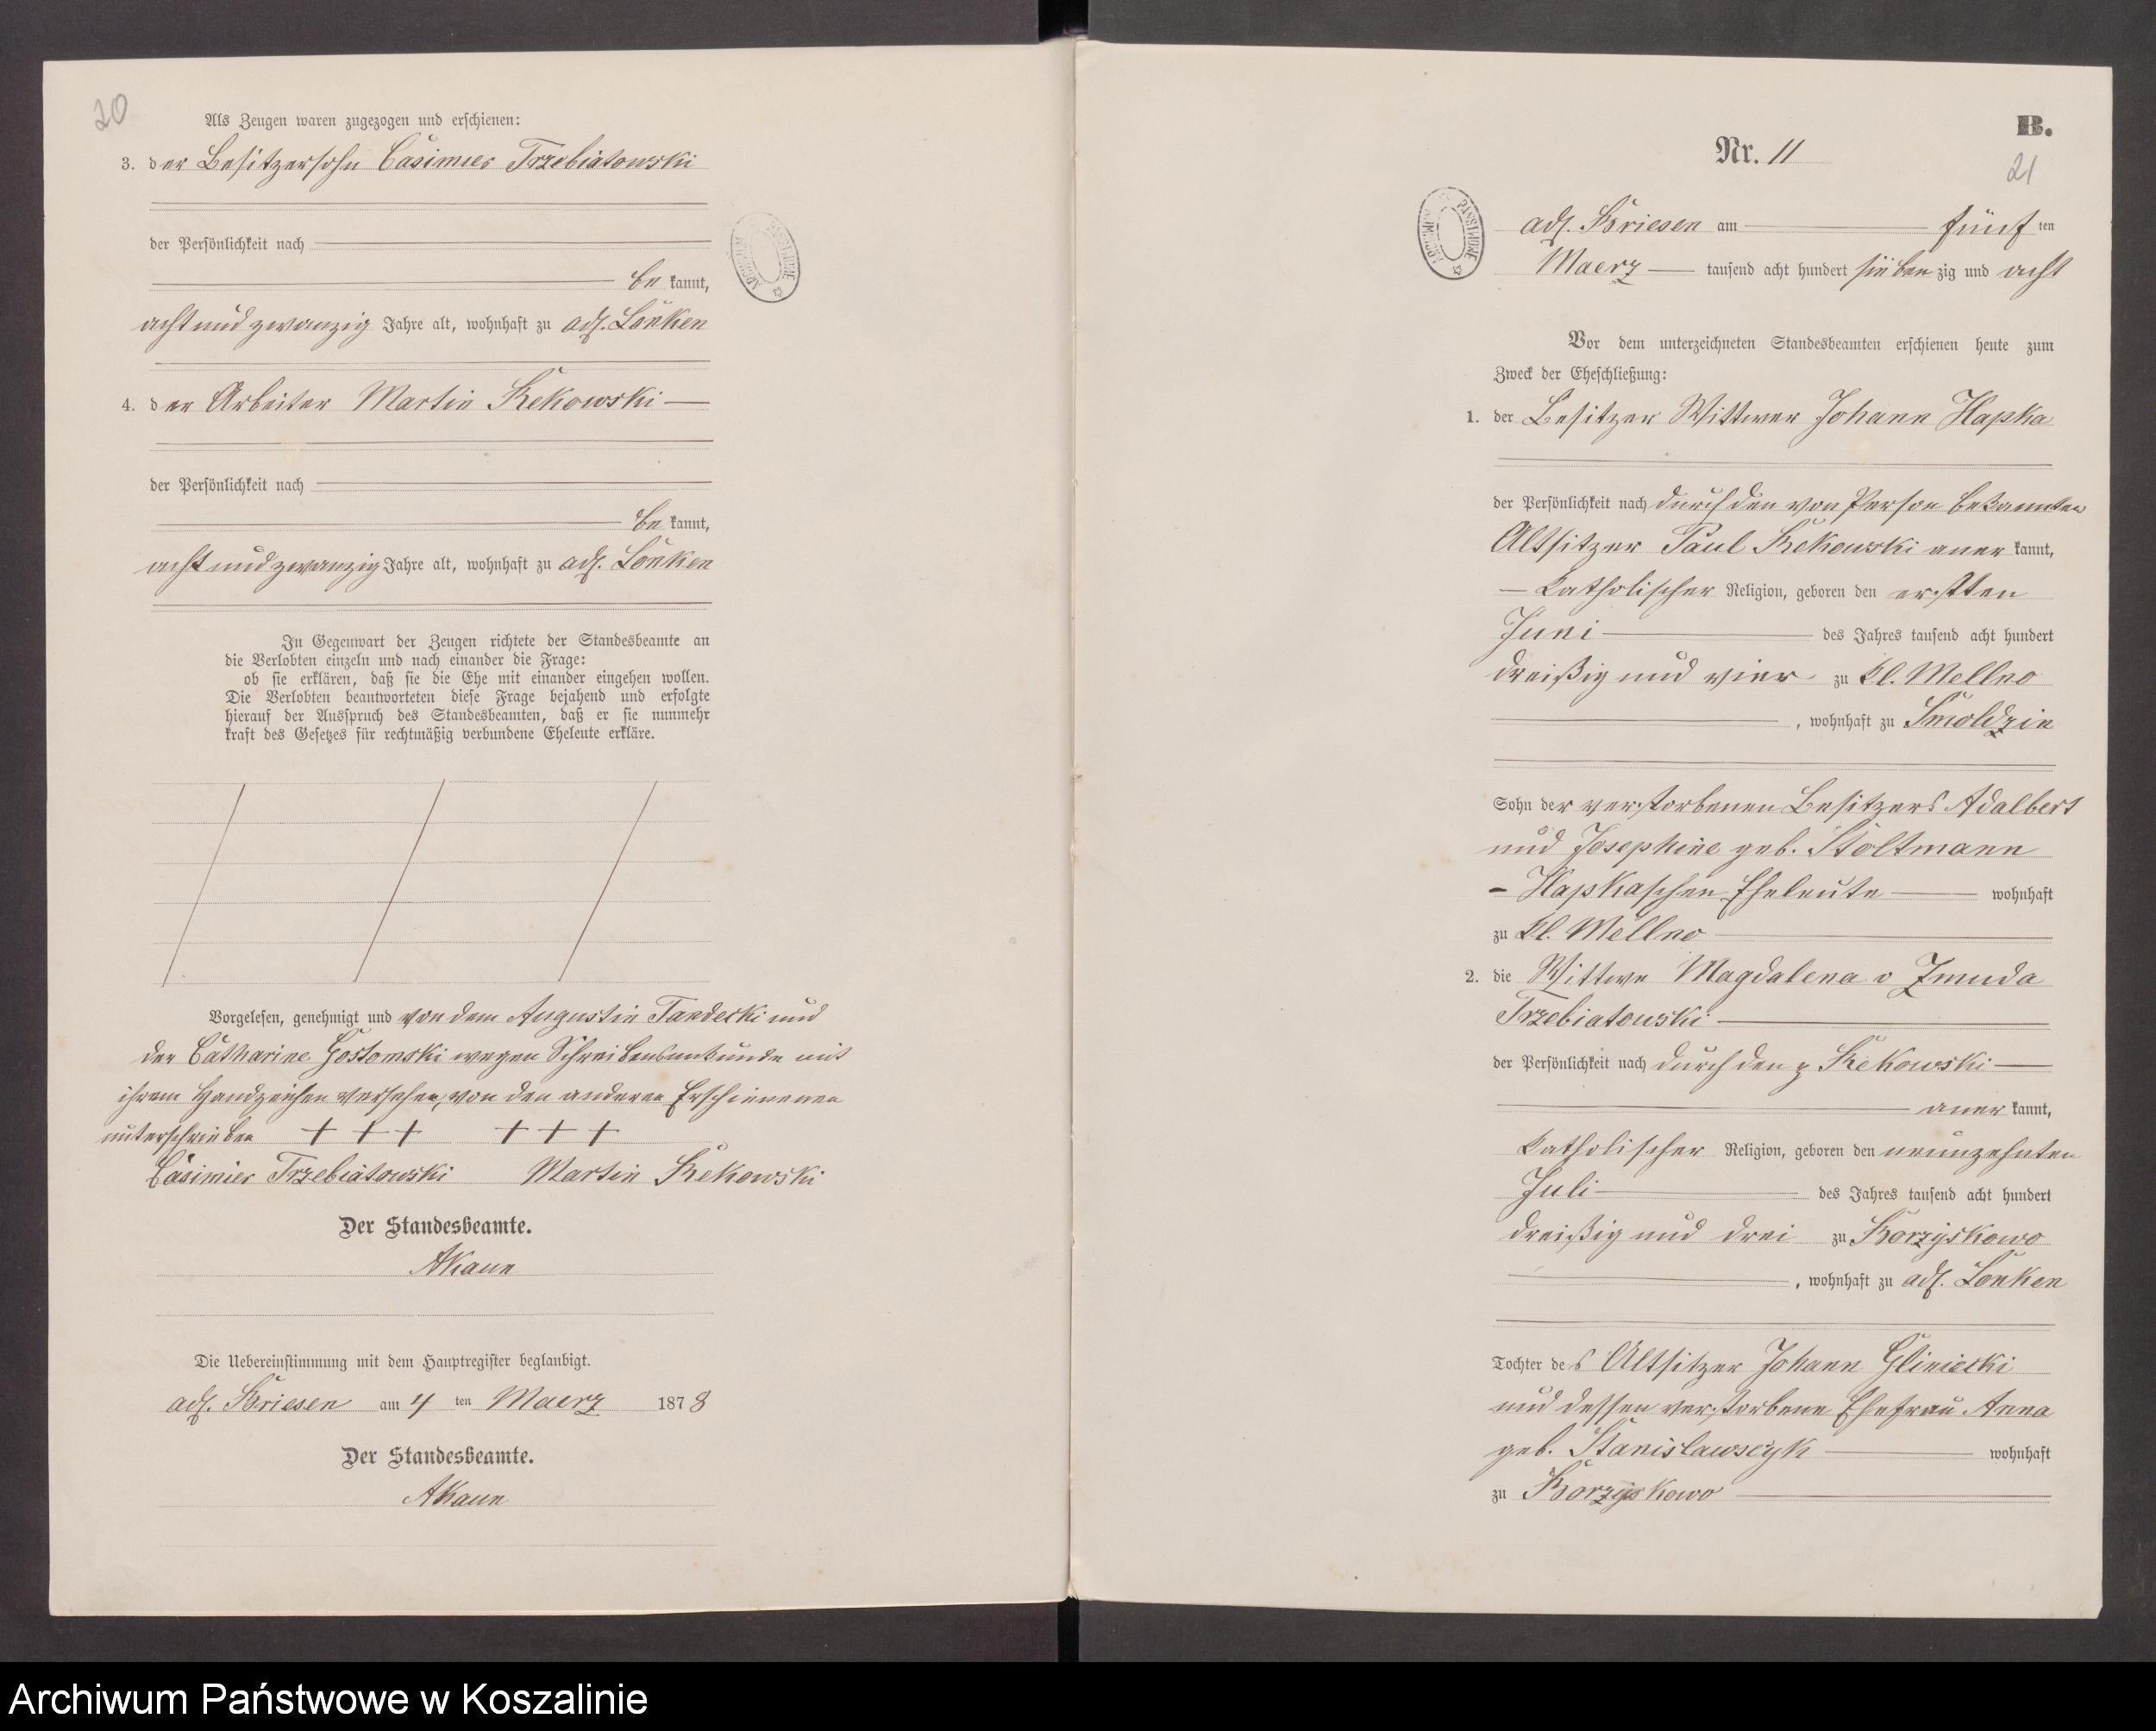 20
Als Zeugen waren zugezogen und erschienen:
3. der Besitzersohn Casimier Trzebiatowski
der Persönlichkeit nach
be kannt,
acht und zwanzig Jahre alt, wohnhaft zu adl. Lonken
4. der Arbeiter Martin Kekowski
der Persönlichkeit nach
be kannt,
acht und zwanzig Jahre alt, wohnhaft zu adl. Lonken
In Gegenwart der Zeugen richtete der Standesbeamte an
die Verlobten einzeln und nach einander die Frage:
ob sie erklären, daß sie die Ehe mit einander eingehen wollen.
Die Verlobten beantworteten diese Frage bejahend und erfolgte
hierauf der Ausspruch des Standesbeamten, daß er sie nunmehr
kraft des Gesetzes für rechtmäßig verbundene Eheleute erkläre.
Vorgelesen, genehmigt und von dem Augustin Tandecki und
der Catharine Gostomski wegen Schreibensunkunde mit
ihrem Handzeichen versehen, von den anderen Erschienenen
unterschrieben + + + + + +
Casimier Trzebiatowski Martin Kekowski
Der Standesbeamte.
Die Uebereinstimmung mit dem Hauptregister beglaubigt.
adl. Briesen am 4 ten Maerz 1878
Der Standesbeamte.
B.
Nr. 11
21
adl. Briesen am fünf ten
Maerz tausend acht hundert sieben zig und acht
Vor dem unterzeichneten Standesbeamten erschienen heute zum
Zweck der Eheschließung:
1. der Besitzer Wittwer Johann Hapka
der Persönlichkeit nach durch den von Person bekannten
Altsitzer Paul Kekowski aner kannt,
Katholischer Religion, geboren den ersten
Juni des Jahres tausend acht hundert
dreißig und vier zu Kl. Mellno
, wohnhaft zu Smoldzin
Sohn der verstorbenen Besitzers Adalbert
und Josephine geb. Stoltmann
- Hapkaschen Eheleute wohnhaft
zu Kl. Mellno
2. die Wittwe Magdalena v Zmuda
Trzebiatowski
der Persönlichkeit nach durch den Kekowski
aner kannt,
Katholischer Religion, geboren den neunzehnten
Juli des Jahres tausend acht hundert
dreißig und drei zu Borzyskowo
, wohnhaft zu adl. Lonken
Tochter des Altsitzer Johann Gliniecki
und dessen verstorbene Ehefrau Anna
geb. Stanislawscyk wohnhaft
zu Borzyskowo
Archiwum Państwowe w Koszalinie